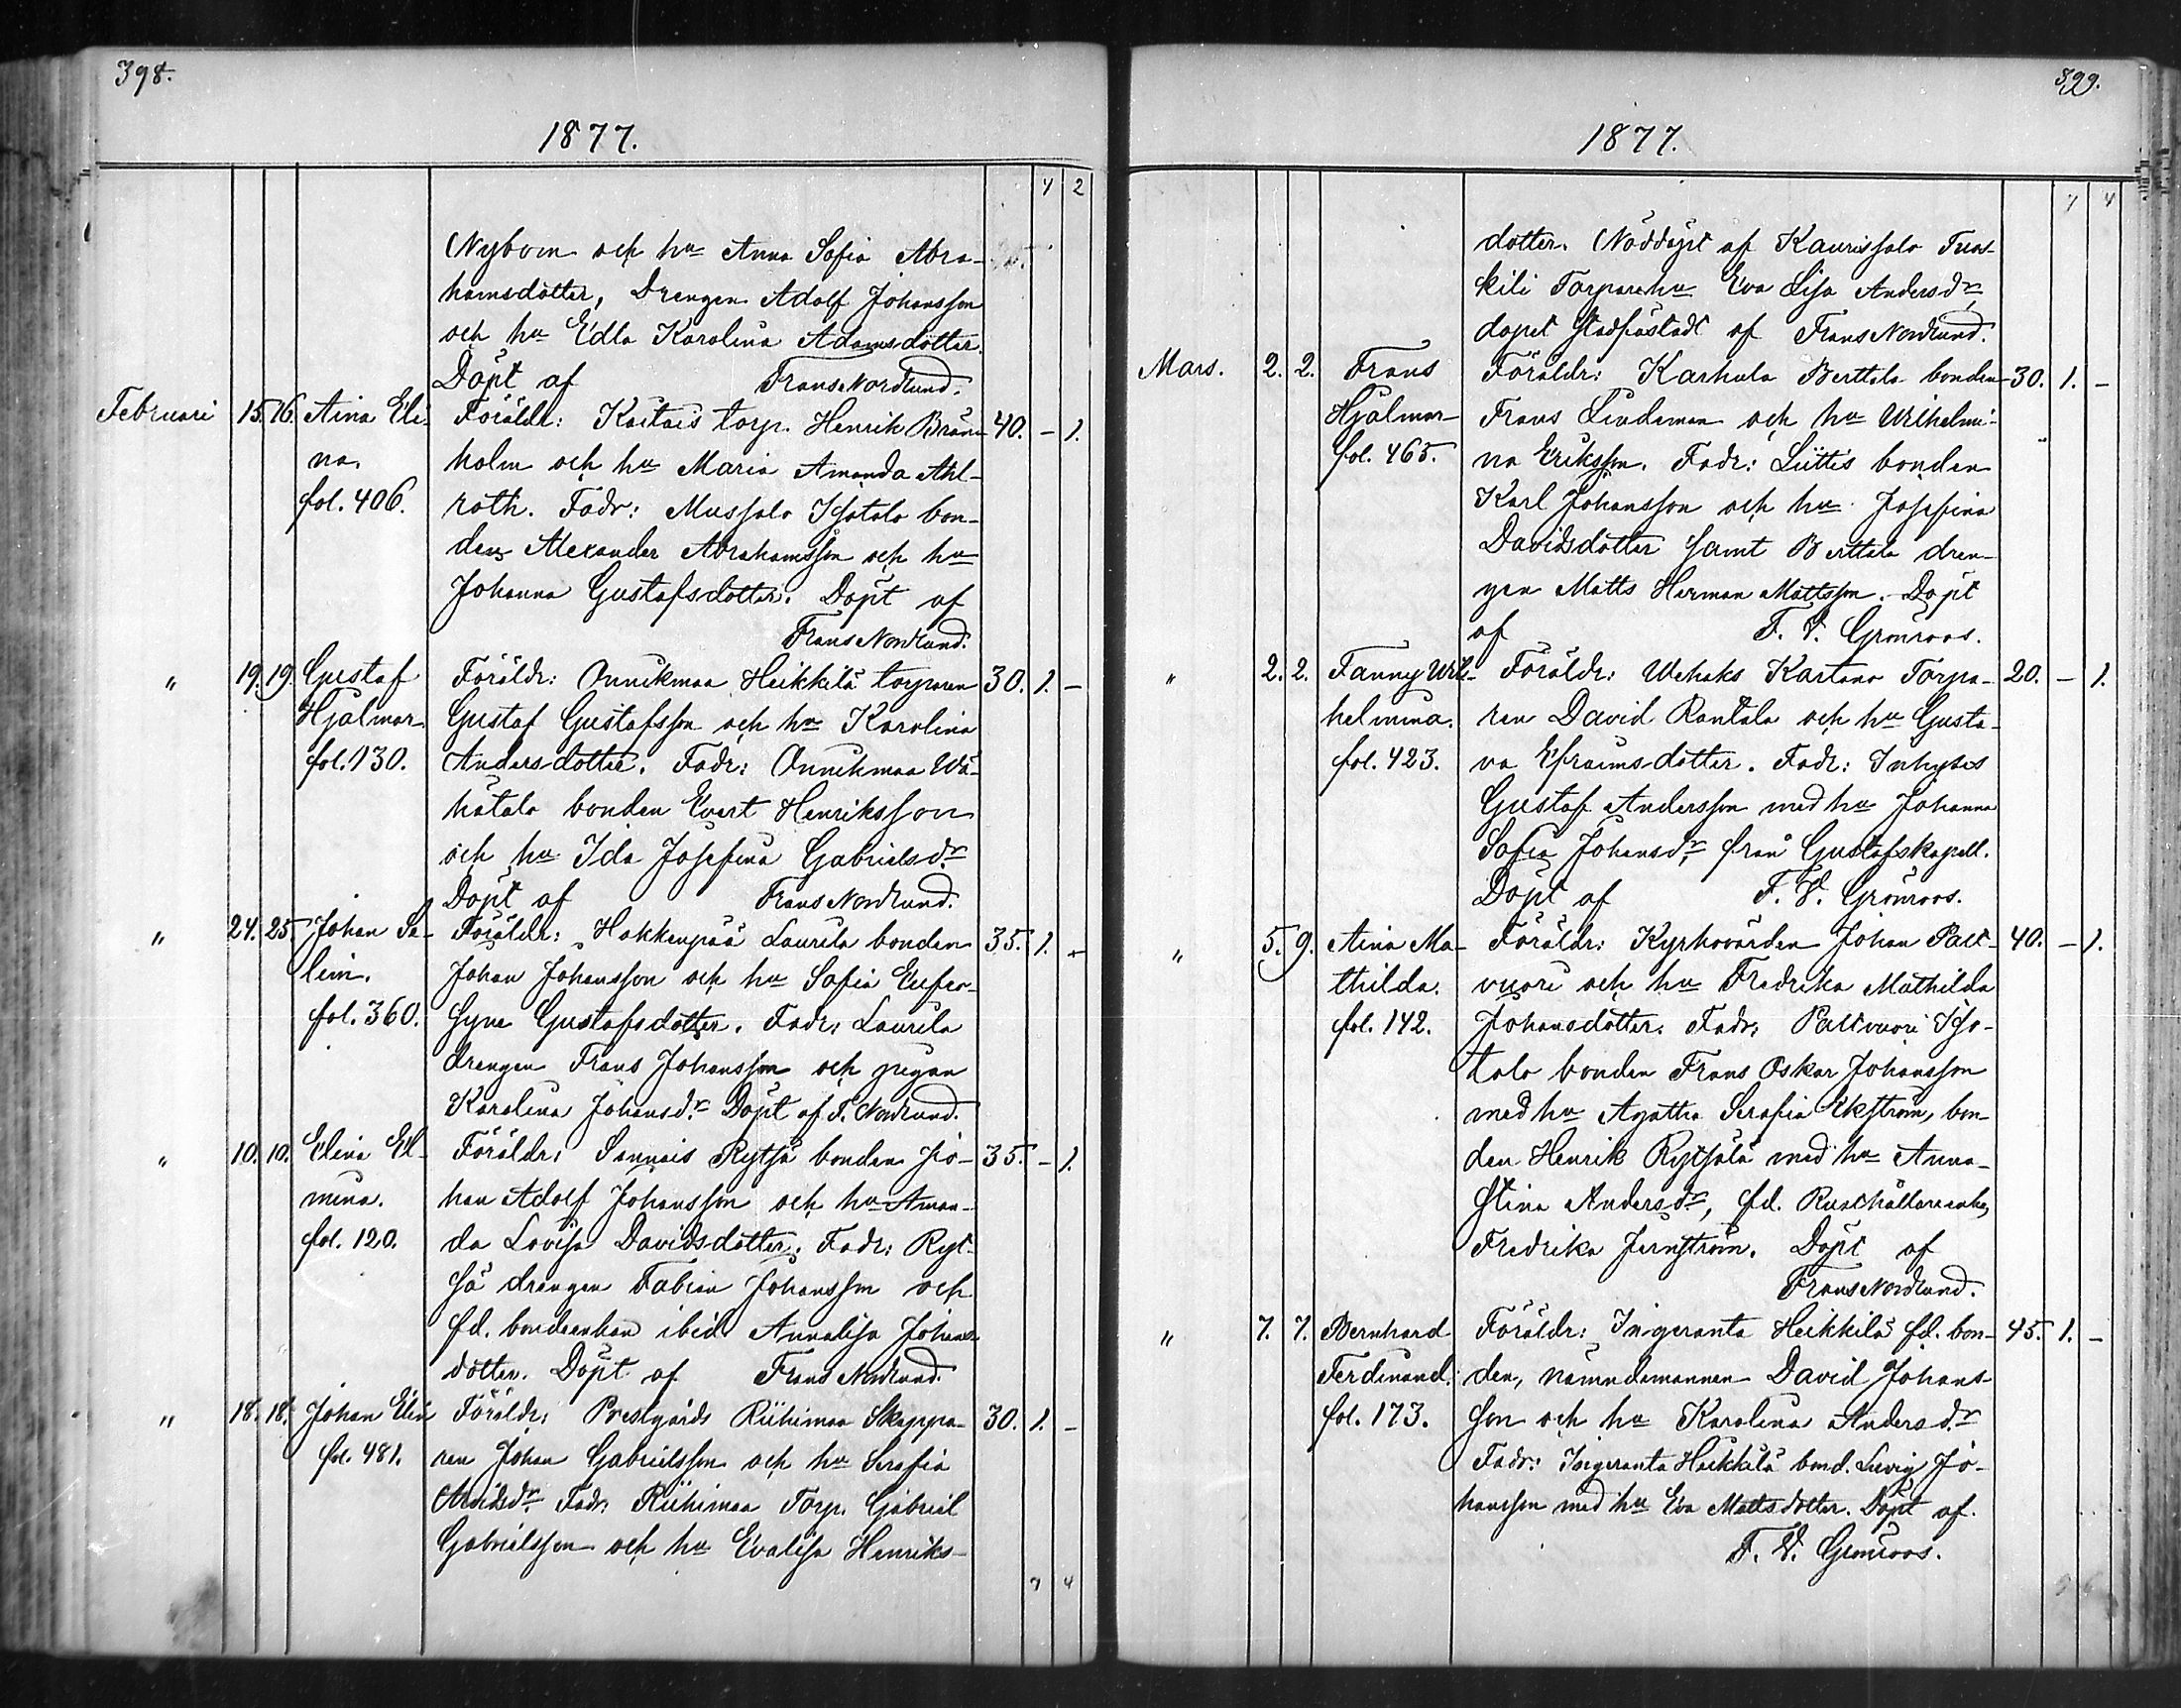 398.
1877.
7 2
Nybom och hu Anna Sofia Abra-
hamsdotter, Drengen Adolf Johansson
och hu Edla Karolina Adamsdotter.
Döpt af Frans Nordlund.
Februari 15. 16. Aina Eli- Föräldr: Kaitais torp. Henrik Brän- 40. – 1.
na. holm och hu Maria Amanda Ahl-
fol. 406. roth. Fadr: Mussalo Isotalo bon-
den Alexander Abrahamsson och hu
Johanna Gustafsdotter. Döpt af
Frans Nordlund.
" 19. 19. Gustaf Föräldr: Onnikmaa Heikkilä torparen 30. 1. –
Hjalmar. Gustaf Gustafsson och hu Karolina
fol. 130. Andersdotter. Fadr: Onnikmaa Wä-
hätalo bonden Evert Henriksson
och hu Ida Josefina Gabrielsdr
Döpt af Frans Nordlund.
" 24. 25. Johan Sa- Föräldr: Hakkenpää Laurila bonden 35. 1. –
lim. Johan Johansson och hu Sofia Eufro-
fol. 360. syne Gustafsdotter. Fadr: Laurila
drengen Frans Johansson och pigan
Karolina Johansdr Döpt af F. Nordlund.
" 10. 10. Elina El- Föräldr: Sannais Rytsä bonden Jo- 35. – 1.
mina. han Adolf Johansson och hu Aman-
fol. 120. da Lovisa Davidsdotter. Fadr: Ryt-
sä drengen Fabian Johansson och
fd. bondeenkan ibid Annalisa Johans-
dotter. Döpt af Frans Nordlund.
" 18. 18. Johan Elin Föräldr: Prestgårds Riihimaa Skeppa- 30. 1. –
fol. 481. ren Johan Gabrielsson och hu Serafia
Arvidsdr. Fadr: Riihimaa Torp. Gabriel
Gabrielsson och hu Evalisa Henriks-
7 4
399.
1877.
7 4
dotter. Nöddöpt af Kaurissalo Tuos-
kili Torparehu Eva Lisa Andersdr,
dopet stadfästadt af Frans Nordlund.
Mars. 2. 2. Frans Föräldr: Karhula Berttala bonden 30. 1. –
Hjalmar Frans Lindeman och hu Wilhelmi-
fol. 465. na Eriksson. Fadr: Lüttis bonden
Karl Johansson och hu Josefina
Davidsdotter samt Berttala dren-
gen Matts Herman Mattsson. Döpt
af F. V. Grönroos.
" 2. 2. Fanny Wil- Föräldr: Wehaks Kartano Torpa- 20. – 1.
helmina. ren David Rantala och hu Gusta-
fol. 423. va Efraimsdotter. Fadr: Inhyses
Gustaf Andersson med hu Johanna
Sofia Johansdr, från Gustafskapell.
Döpt af F. V. Grönroos.
" 5. 9. Aina Ma- Föräldr: Kyrkovärden Johan Palt- 40. – 1.
thilda. vuori och hu Fredrika Mathilda
fol. 142. Johansdotter. Fadr: Paltvuori Iso-
talo bonden Frans Oskar Johansson
med hu Agatha Serafia Ekström, bon-
den Henrik Rytsälä med hu Anna-
Stina Andersdr, fd. Rusthållareenkan
Fredrika Jernström. Döpt af
Frans Nordlund.
" 7. 7. Bernhard Föräldr: Ingeranta Heikkilä fd. bon- 45. 1. –
Ferdinand. den, nämndemannen David Johans-
fol. 173. son och hu Karolina Andersdr.
Fadr: Ingeranta Heikkilä bond. Levig Jo-
hansson med hu Eva Mattsdotter. Döpt af
F. V. Grönroos.